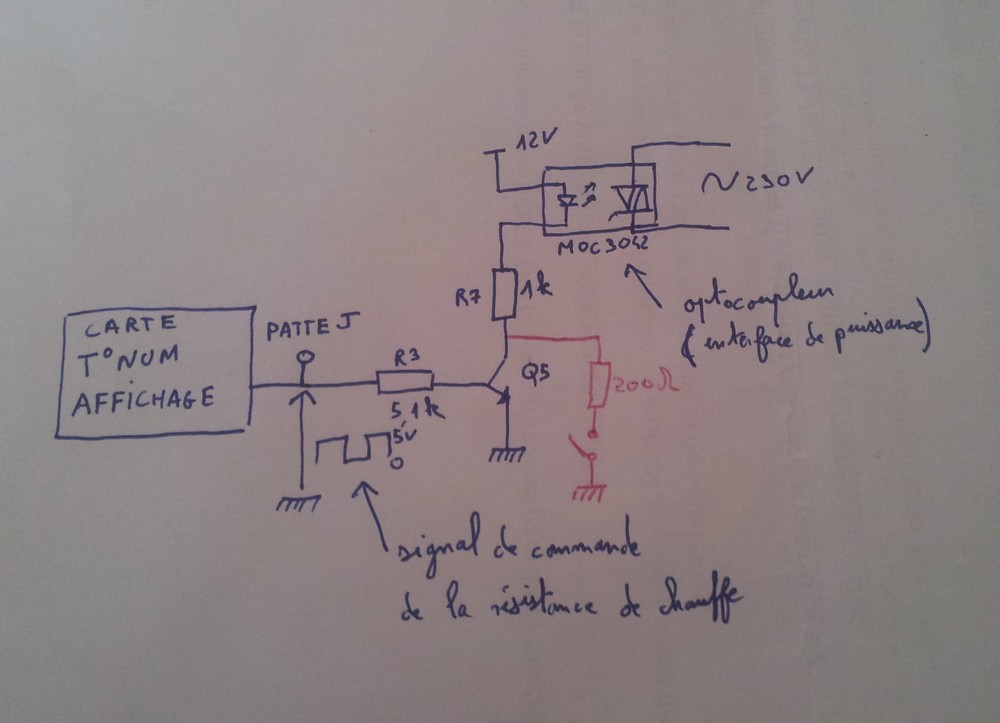 12V
~230V
MOC3042
R7
1k
optocoupleur
(interface de puissance)
CARTE
T° NUM
AFFICHAGE
PATTE J
R3
5,1k
Q5
200Ω
5V
0
signal de commande
de la résistance de chauffe